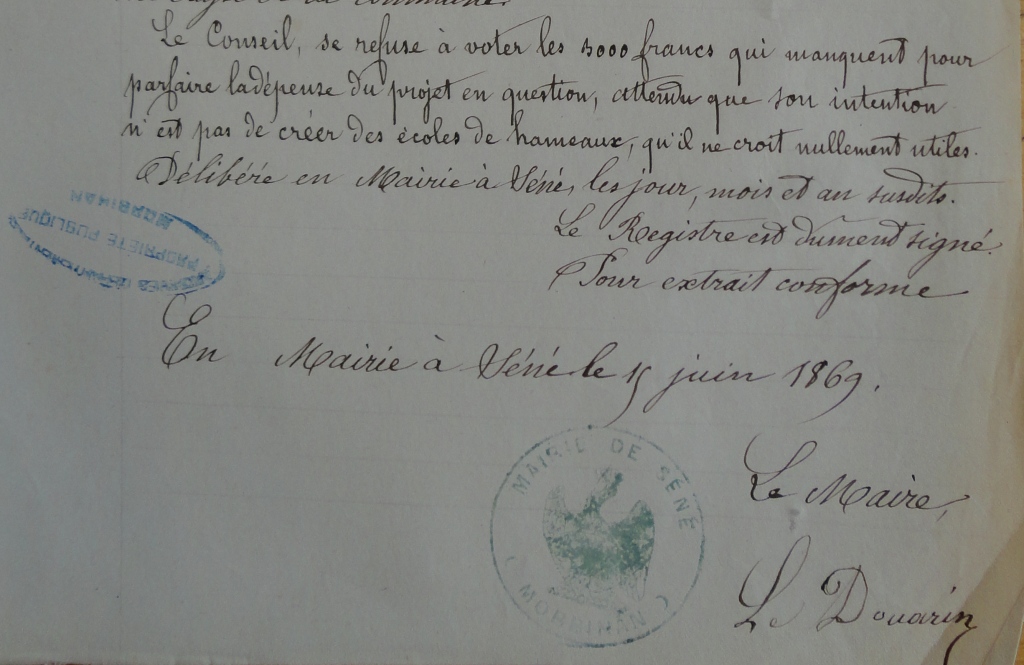 la commune.
Le Conseil, se refuse à voter les 3000 francs qui manquent pour
parfaire la dépense du projet en question, attendu que son intention
n'est pas de créer des écoles de hameaux, qu'il ne croit nullement utiles.
Délibéré en Mairie à Séné, les jour, mois et an susdits.
Le Registre est dûment signé.
Pour extrait conforme
MORBIHAN
PROPRIÉTÉ PUBLIQUE
En Mairie à Séné le 15 juin 1869.
MAIRIE DE SÉNÉ
(MORBIHAN)
Le Maire,
Le Douarin